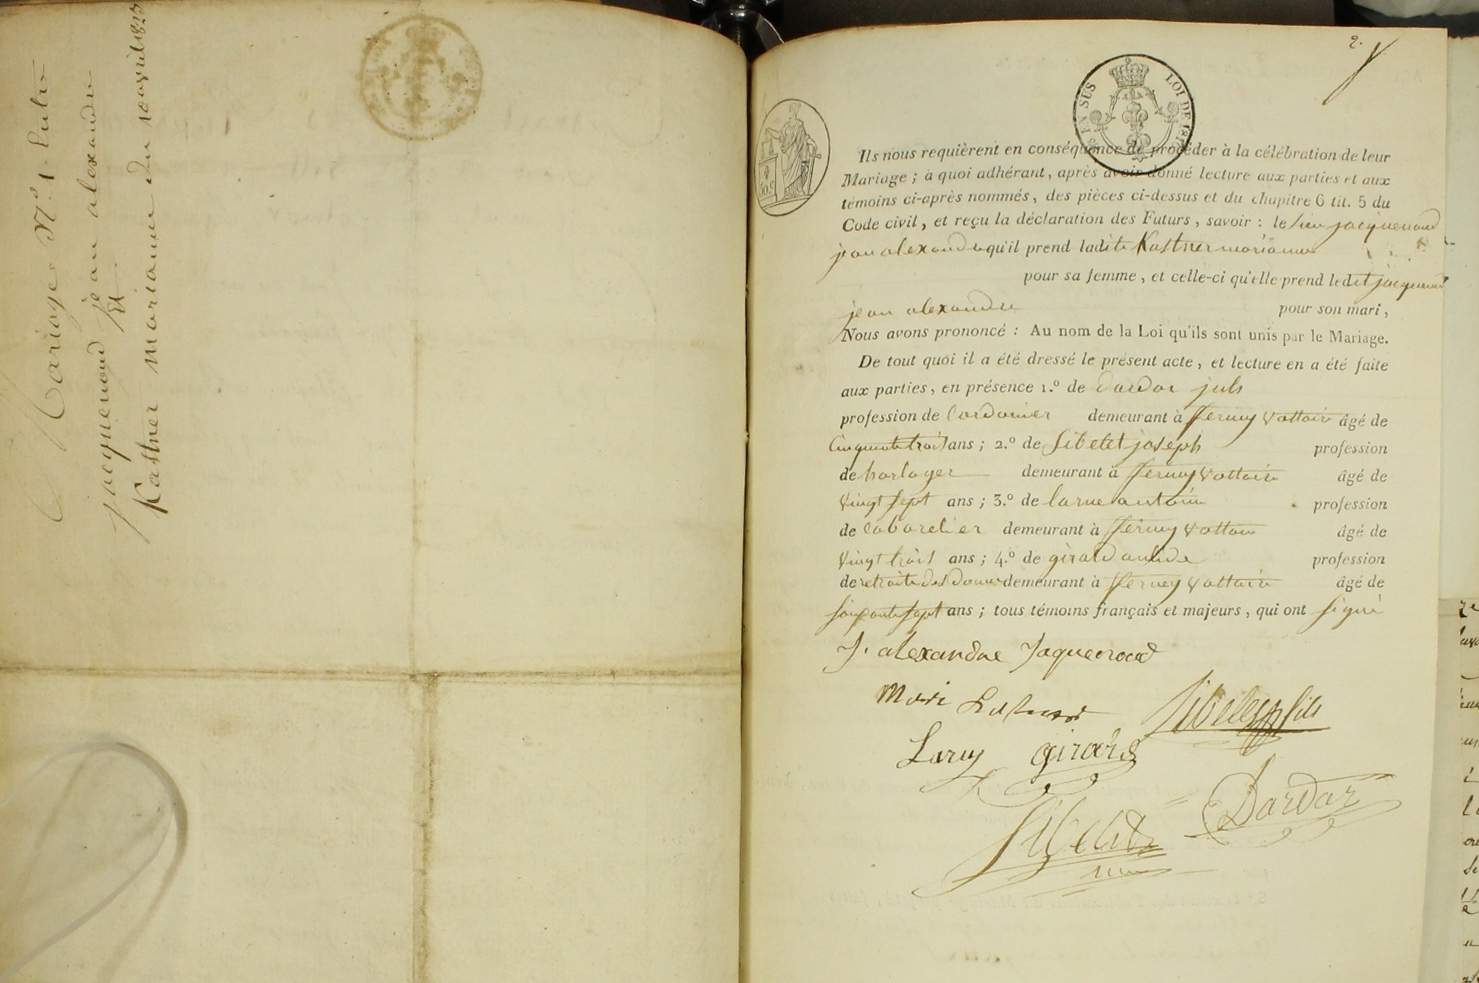 Mariage N.º 1 Entre
jacquenoud jean alexandre
Et
Kastner marianne du 10 avril 1823
2.
EN SUS
LOI DE 181
Ils nous requièrent en conséquence de procéder à la célébration de leur
Mariage ; à quoi adhérant, après avoir donné lecture aux parties et aux
témoins ci-après nommés, des pièces ci-dessus et du chapitre 6 tit. 5 du
Code civil, et reçu la déclaration des Futurs, savoir : le sieur jacquenoud
jean alexandre qu'il prend ladite Kastner marianne
pour sa femme, et celle-ci qu'elle prend ledit jacquenoud
jean alexandre pour son mari,
Nous avons prononcé : Au nom de la Loi qu'ils sont unis par le Mariage.
De tout quoi il a été dressé le présent acte, et lecture en a été faite
aux parties, en présence 1.º de dardar
profession de Cordonier demeurant à ferney Voltaire âgé de
Cinquante trois ans ; 2.º de Sibelet joseph profession
de horloger demeurant à ferney Voltaire âgé de
Vingt sept ans ; 3.º de larue antoine profession
de Cabaretier demeurant à ferney Voltaire âgé de
Vingt trois ans ; 4.º de girard profession
de retraite des douanes demeurant à ferney Voltaire âgé de
soixante sept ans ; tous témoins français et majeurs, qui ont signé
J. alexandre Jaquenoud
Mari
Sibelet fils
Larue girard
Dardar
Sibelet